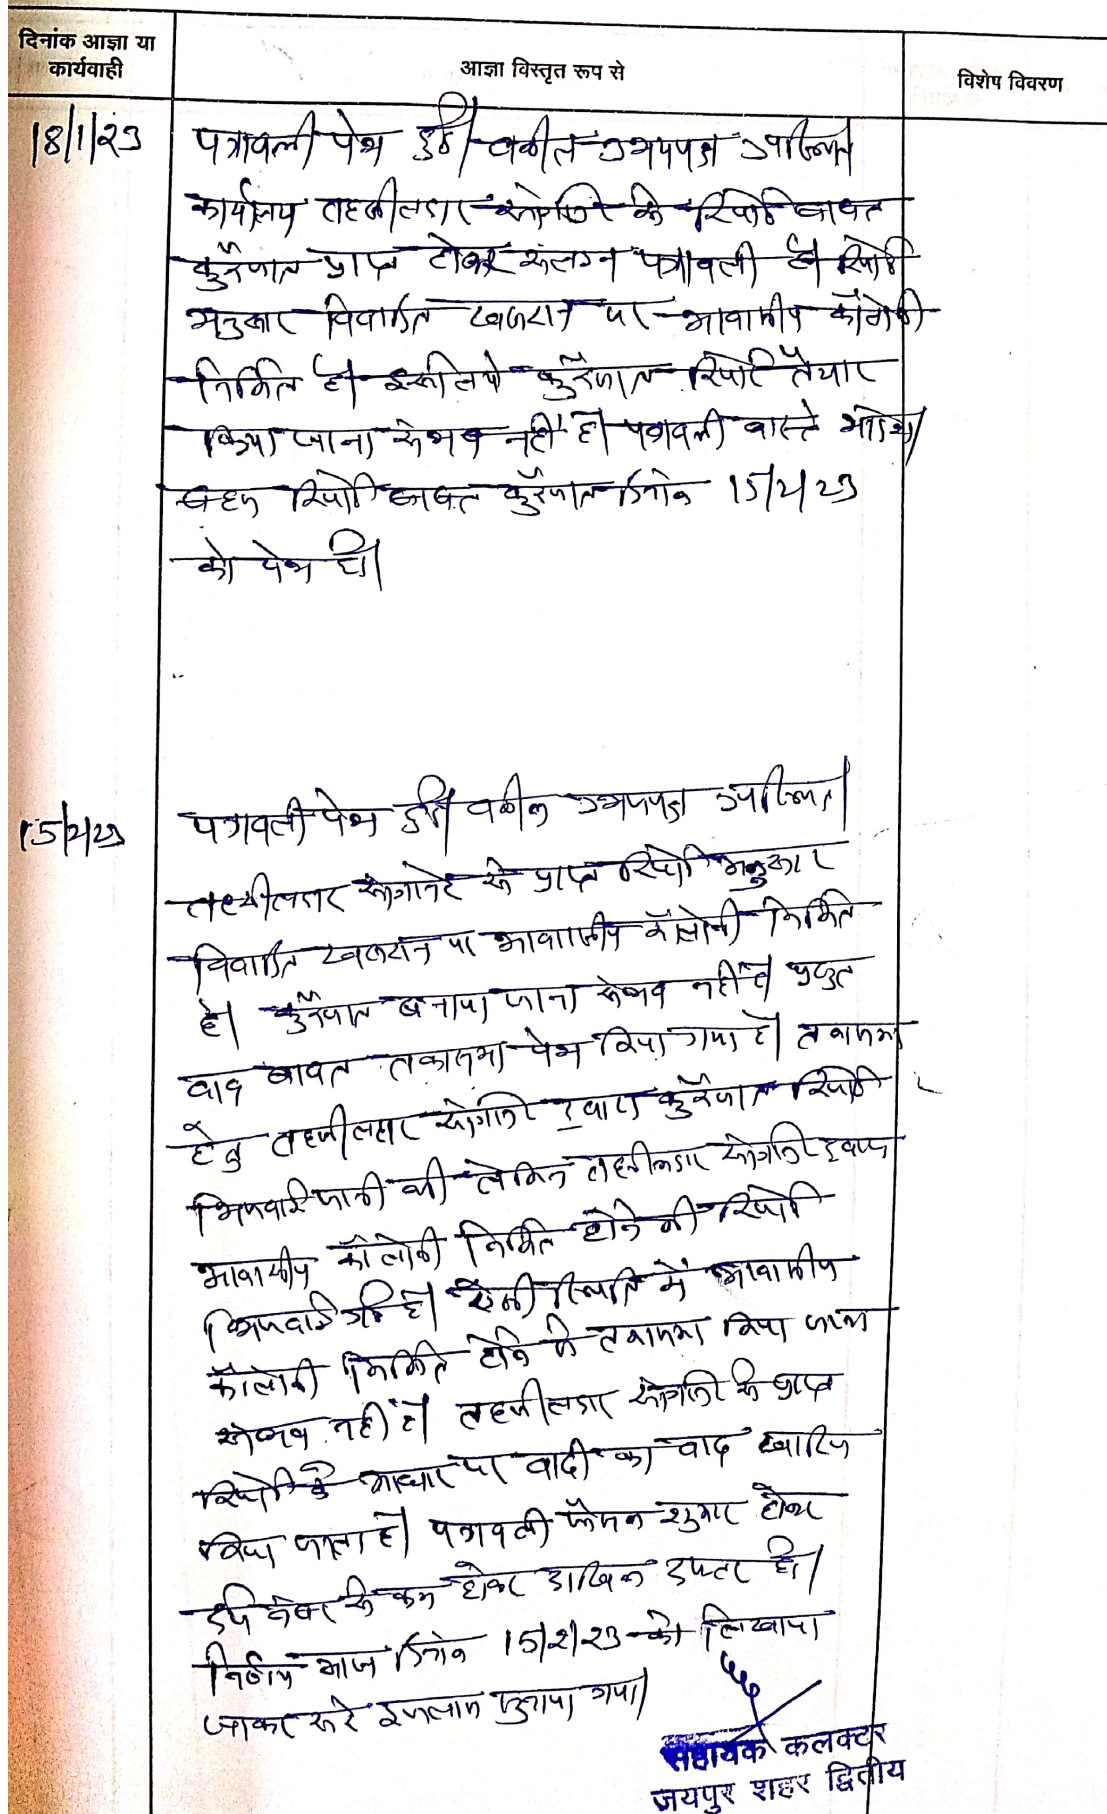 दिनांक आज्ञा या
कार्यवाही
आज्ञा विस्तृत रूप से
विशेष विवरण
18/1/23
पत्रावली पेश हुई। वकील उभयपक्ष उपस्थित।
कार्यालय तहसीलदार सांगानेर से रिपोर्ट बाबत
कुर्रेजात प्राप्त होकर संलग्न पत्रावली है। रिपोर्ट
अनुसार विवादित खसरान पर आवासीय कॉलोनी
निर्मित है। इसलिये कुर्रेजात रिपोर्ट तैयार
किया जाना संभव नहीं है। पत्रावली वास्ते
बहस रिपोर्ट बाबत कुर्रेजात दिनांक 15/2/23
को पेश हो।
15/2/23
पत्रावली पेश हुई। वकील उभयपक्ष उपस्थित।
तहसीलदार सांगानेर से प्राप्त रिपोर्ट अनुसार
विवादित खसरान पर आवासीय कॉलोनी निर्मित
है। कुर्रेजात बनाया जाना संभव नहीं है। प्रस्तुत
वाद बाबत तकासमा पेश किया गया है। तकासमा
हेतु तहसीलदार सांगानेर द्वारा कुर्रेजात रिपोर्ट
भिजवाई जानी थी लेकिन तहसीलदार सांगानेर द्वारा
आवासीय कॉलोनी निर्मित होने की रिपोर्ट
भिजवाई गई है। ऐसी स्थिति में आवासीय
कॉलोनी निर्मित होने से तकासमा किया जाना
संभव नहीं है। तहसीलदार सांगानेर से प्राप्त
रिपोर्ट के आधार पर वादी का वाद खारिज
किया जाता है। पत्रावली फैसल शुमार होकर
दर्ज नंबर से कम होकर दाखिल दफ्तर हो।
निर्णय आज दिनांक 15/2/23 को लिखाया
जाकर सरे इजलास सुनाया गया।
सहायक कलक्टर
जयपुर शहर द्वितीय